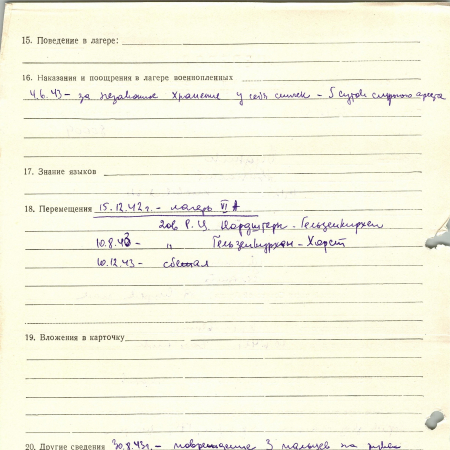 15. Поведение в лагере:
16. Наказания и поощрения в лагере военнопленных
4.6.43 – за незаконное хранение у себя спичек – 5 суток строгого ареста
17. Знание языков
18. Перемещения 15.12.42 г. – лагерь VI А
Р.Ц. Нордштерн – Гельзенкирхен
10.8.43 – " Гельзенкирхен – Хорст
10.12.43 – сбежал
19. Вложения в карточку
20. Другие сведения 30.8.43 г. – повреждение 3 пальцев на